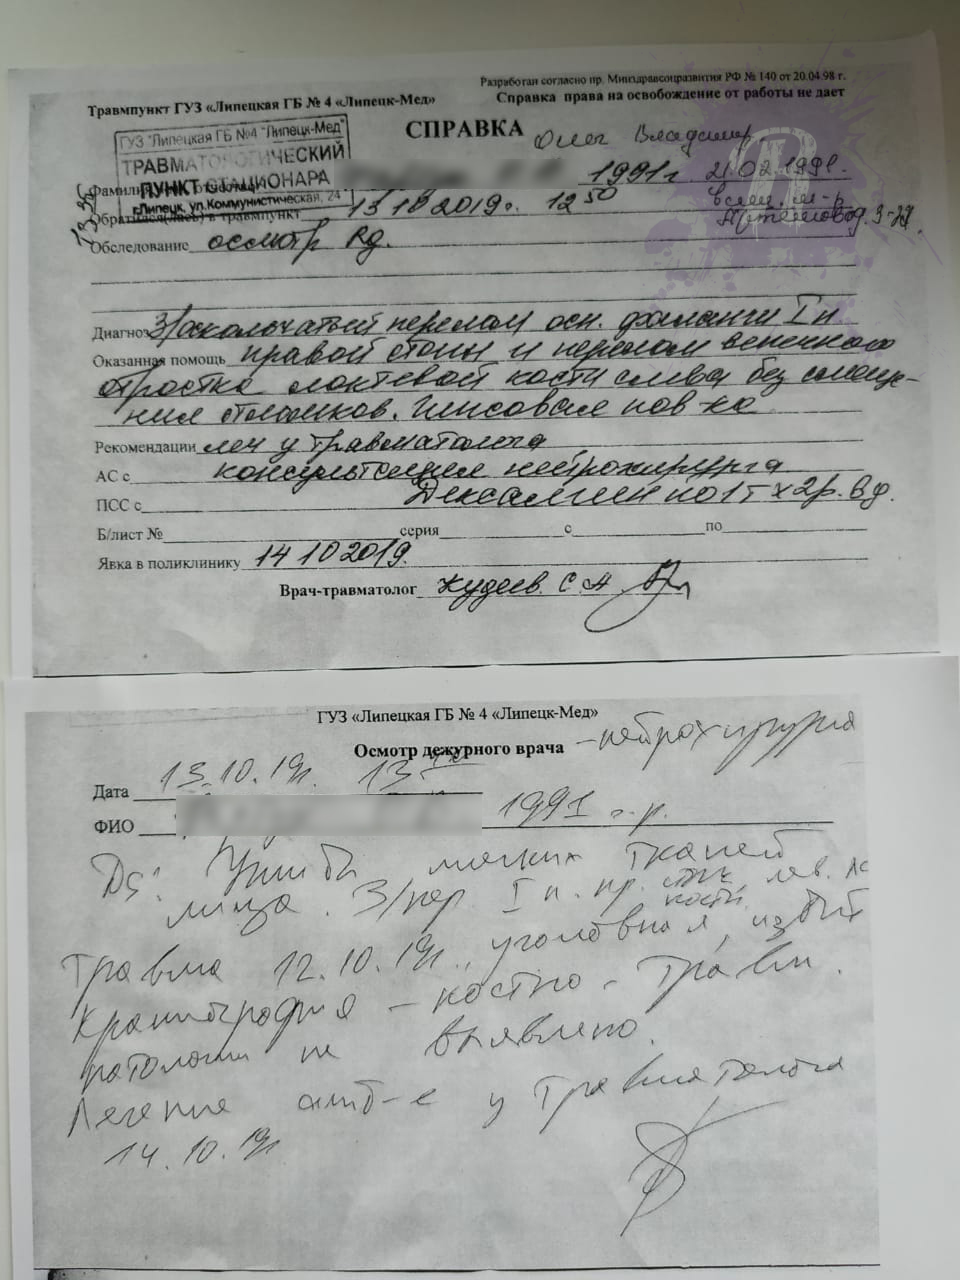 Разработан согласно пр. Минздравсоцразвития РФ № 140 от 20.04.98 г.
Травмпункт ГУЗ «Липецкая ГБ № 4 «Липецк-Мед» Справка права на освобождение от работы не дает
СПРАВКА Олег Владимир.
ГУЗ "Липецкая ГБ №4 "Липецк-Мед"
ТРАВМАТОЛОГИЧЕСКИЙ
ПУНКТ СТАЦИОНАРА
г.Липецк, ул.Коммунистическая, 24
Фамилия 1991г 21.02.1991.
Обратился(лась) в травмпункт 13 10 2019г. 12 50
Обследование осмотр Rg. д. 3-29.
Диагноз З/оскольчатый перелом осн. фаланги I п.
Оказанная помощь правой стопы и перелом венечного
отростка локтевой кости слева без смеще-
ния отломков. Гипсовая пов-ка
Рекомендации леч у травматолога
АС с консультация нейрохирурга
ПСС с Дексалгин по 1т х 2р. в д.
Б/лист № серия с по
Явка в поликлинику 14 10 2019г.
Врач-травматолог Кудаев С. А
ГУЗ «Липецкая ГБ № 4 «Липецк-Мед»
Осмотр дежурного врача - нейрохирурга
Дата 13.10.19г. 13
ФИО 1991 г.р.
Ds: Ушиб мягких тканей
лица. З/пер. I п. пр. кости лев.
Травма 12.10.19г., уголовная, избит
Краниография - костно-травм.
патологии не выявлено.
Лечение амб-е у травматолога
14.10.19г